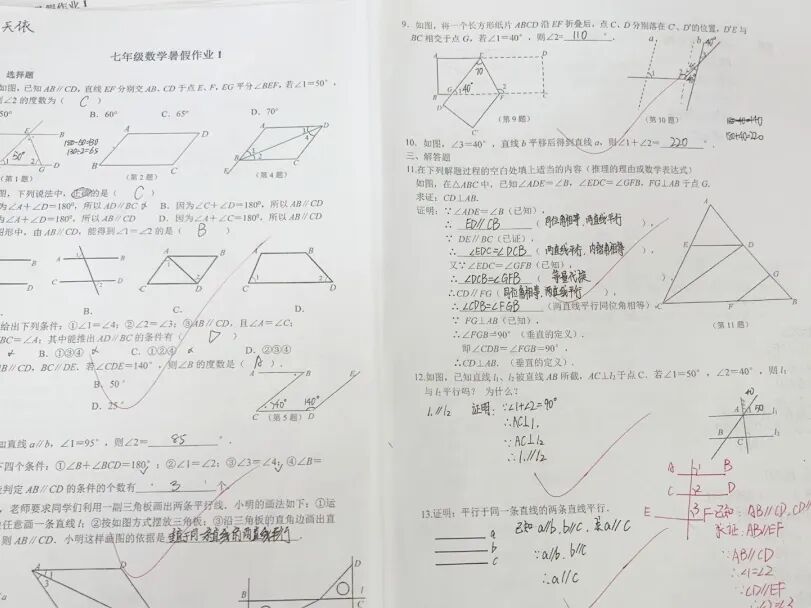 七年级数学暑假作业 1
选择题
如图，已知 AB∥CD，直线 EF 分别交 AB、CD 于点 E、F，EG 平分∠BEF，若∠1=50°，
∠2 的度数为（ C ）
B．60° C．65° D．70°
（第 1 题） （第 2 题） （第 4 题）
图，下列说法中，正确的是（ C ）
为∠A+∠D=180°，所以 AD∥BC B．因为∠C+∠D=180°，所以 AB∥CD
为∠A+∠D=180°，所以 AB∥CD D．因为∠A+∠C=180°，所以 AB∥CD
图形中，由 AB∥CD，能得到∠1=∠2 的是（ B ）
B． C． D．
给出下列条件：①∠1=∠4；②∠2=∠3；③AB∥CD，且∠A=∠C；
∠EBC=∠A；其中能推出 AD∥BC 的条件有（ D ）
B．①③④ C．①②④ D．②③④
AB∥CD，BC∥DE．若∠CDE=140°，则∠B 的度数是（ A ）．
B．50°
D．25°
（第 5 题）
如直线 a∥b，∠1=95°，则∠2= 85 ．
下四个条件：①∠B+∠BCD=180°；②∠1=∠2；③∠3=∠4；④∠B=
能判定 AB∥CD 的条件的个数有 3 个．
，老师要求同学们利用一副三角板画出两条平行线．小明的画法如下：①运
任意画一条直线 l；②按如图方式摆放三角板；③沿三角板的直角边画出直
则 AB∥CD．小明这样画图的依据是
9．如图，将一个长方形纸片 ABCD 沿 EF 折叠后，点 C、D 分别落在 C'、D'的位置，D'E 与
BC 相交于点 G，若∠1=40°，则∠2= 110 ．
（第 9 题） （第 10 题）
180-40=140
180+40=220
10．如图，∠3=40°，直线 b 平移后得到直线 a，则∠1+∠2= 220 ．
三、解答题
11.在下列解题过程的空白处填上适当的内容（推理的理由或数学表达式）
如图，在△ABC 中，已知∠ADE=∠B，∠EDC=∠GFB，FG⊥AB 于点 G．
求证：CD⊥AB．
证明：∵∠ADE=∠B（已知），
∴ ED∥CB （ 同位角相等，两直线平行 ），
∵ DE∥BC（已证），
∴ ∠EDC=∠DCB （ 两直线平行，内错角相等 ），
又∵∠EDC=∠GFB（已知），
∴ ∠DCB=∠GFB （ 等量代换 ），
∴CD∥FG（ 同位角相等，两直线平行 ），
∴ ∠CDB=∠FGB （两直线平行同位角相等）
∵ FG⊥AB（已知），
∴∠FGB=90°（垂直的定义）．
即∠CDB=∠FGB=90°，
∴CD⊥AB．（垂直的定义）．
（第 11 题）
12.如图，已知直线 l₁、l₂被直线 AB 所截，AC⊥l₂于点 C．若∠1=50°，∠2=40°，则 l₁
与 l₂平行吗？ 为什么？
l₁∥l₂ 证明：∵∠1+∠2=90°
∴AC⊥l₁
∵AC⊥l₂
∴l₁∥l₂
13.证明：平行于同一条直线的两条直线平行．
已知 a∥b，b∥c，求 a∥c
∵a∥b，b∥c
∴a∥c
已知：AB∥CD，CD∥
求证：AB∥EF
∵AB∥CD
∴∠1=∠2
∵CD∥EF
∴∠2=∠3